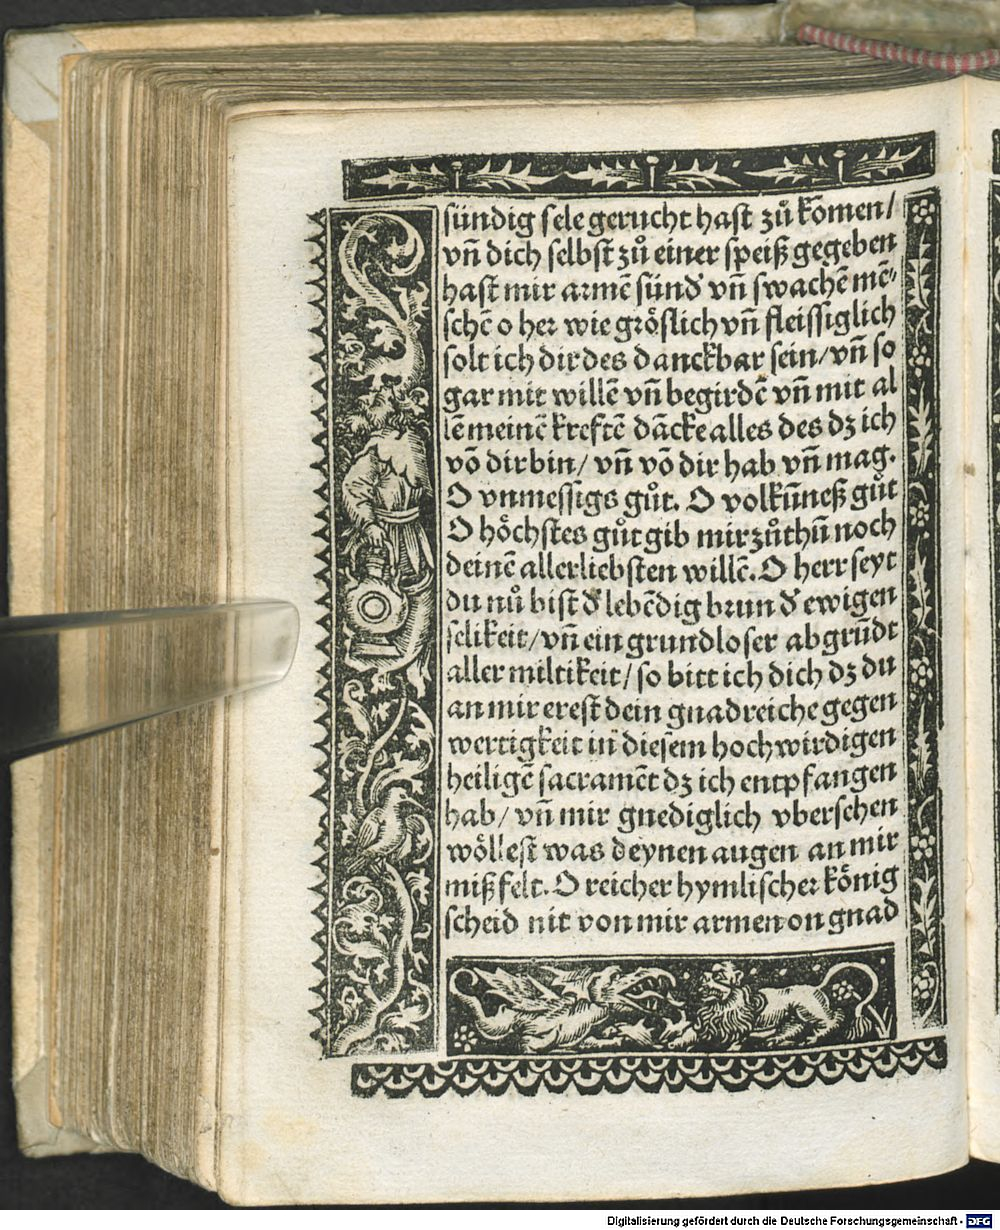 sündig sele gerucht hast zů komen/
vñ dich selbst zů einer speiß gegeben
hast mir armē sünd' vñ swachē mē⸗
schē o her wie gröslich vñ fleissiglich
solt ich dir des danckbar sein/ vñ so
gar mit willē vñ begirdē vñ mit al
lē meinē kreftē dācke alles des dz ich
vō dir bin/ vñ vō dir hab vñ mag.
O vnmessigs gůt. O volkūneß gůt
O höchstes gůt gib mir zůthū noch
deinē allerliebsten willē. O herr seyt
du nů bist d' lebēdig brun d' ewigen
selikeit/ vñ ein grundloser abgrūdt
aller miltikeit/ so bitt ich dich dz du
an mir erest dein gnadreiche gegen
wertigkeit in diesem hochwirdigen
heiligē sacramēt dz ich entpfangen
hab/ vñ mir gnediglich vbersehen
wöllest was deynen augen an mir
mißfelt. O reicher hymlischer König
scheid nit von mir armen on gnad
Digitalisierung gefördert durch die Deutsche Forschungsgemeinschaft - DFG